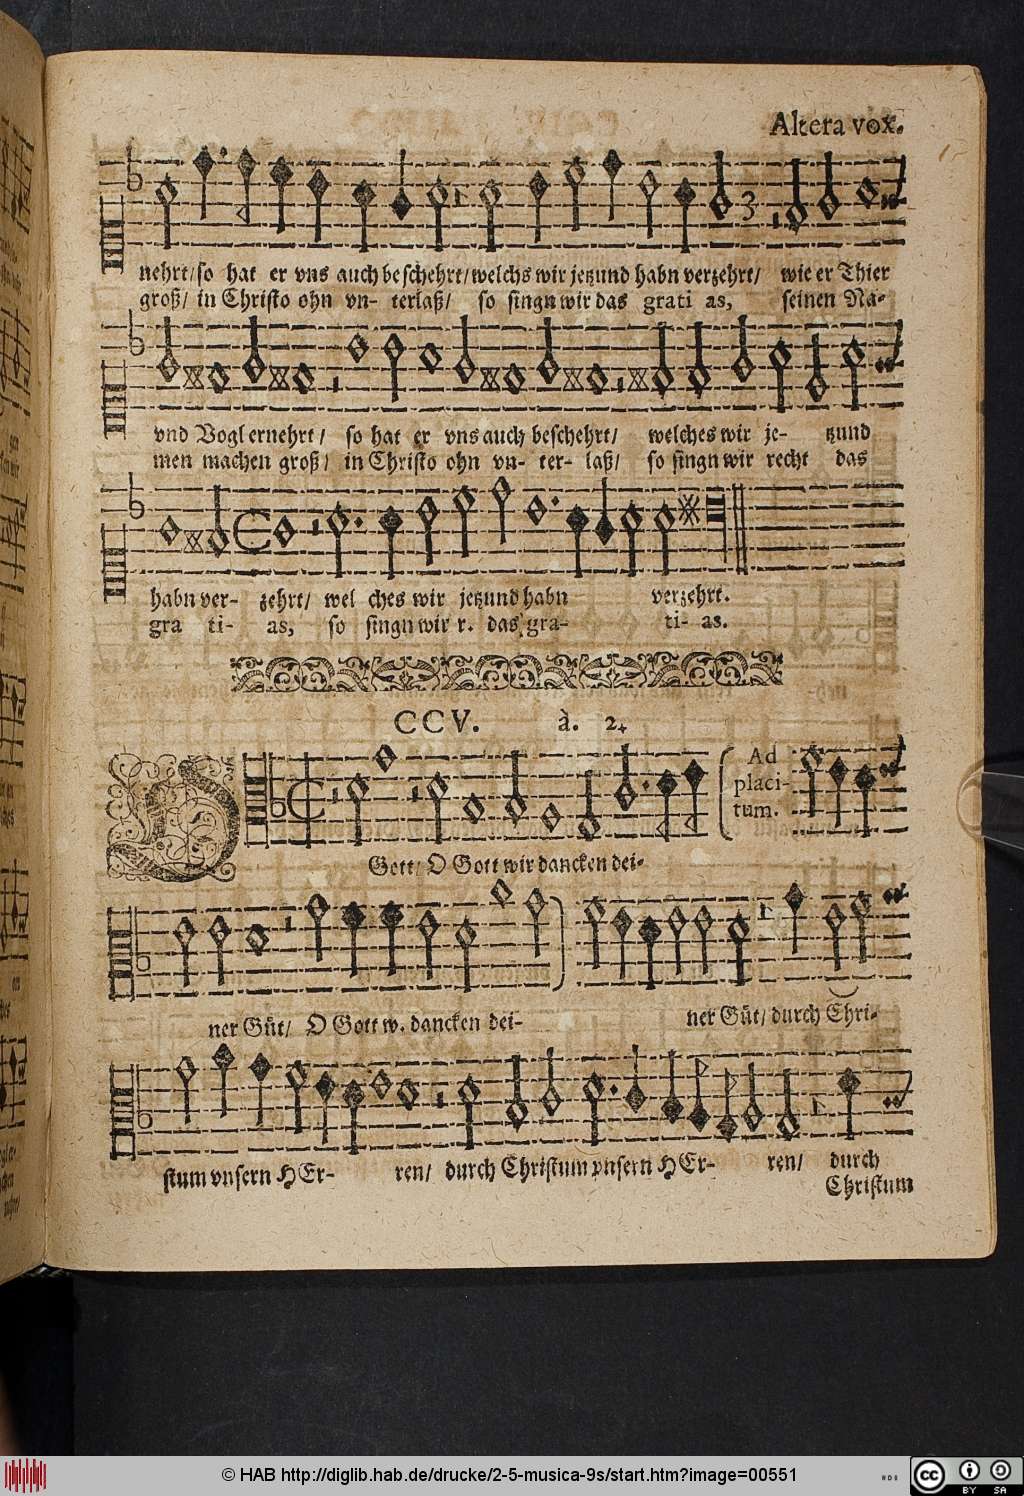 Altera vox.
nehrt/ so hat er vns auch beschehrt/ welchs wir jetzund habn verzehrt/ wie er Thier
groß/ in Christo ohn vn- terlaß/ so singn wir das grati as, seinen Na-
vnd Vogl ernehrt/ so hat er vns auch beschehrt/ welches wir je- tzund
men machen groß/ in Christo ohn vn- ter- laß/ so singn wir recht das
habn ver- zehrt/ wel ches wir jetzund habn verzehrt.
gra ti- as, so singn wir r. das gra- ti- as.
CCV. à. 2.
Ad
placi-
tum.
O Gott/ O Gott wir dancken dei-
ner Güt/ O Gott w. dancken dei- ner Güt/ durch Chri-
stum vnsern HEr- ren/ durch Christum vnsern HEr- ren/ durch
Christum
© HAB http://diglib.hab.de/drucke/2-5-musica-9s/start.htm?image=00551
cc BY SA